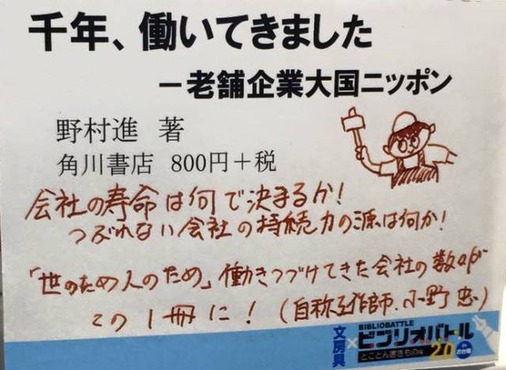 千年、働いてきました
－老舗企業大国ニッポン
野村進 著
角川書店 800円＋税
会社の寿命は何で決まるか！
つぶれない会社の持続力の源は何か！
「世のため人のため」働きつづけてきた会社の数々が
この1冊に！（自称 作師、小野 忠）
文房具
BIBLIOBATTLE
ビブリオバトル
とことん書きもの 2.0